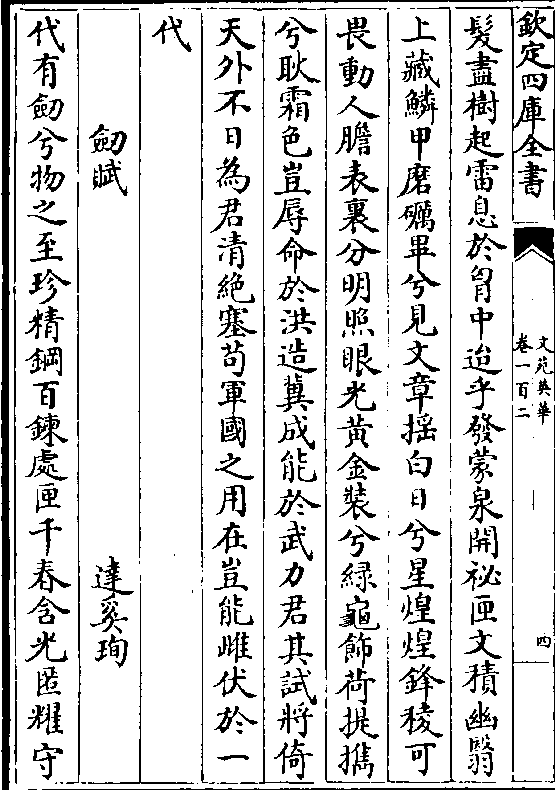 欽定四庫全書
文苑英華
卷一百二
四
髮盡樹起雷息於胷中迨乎發蒙泉開祕匣文積幽翳
上藏鱗甲磨礪畢兮見文章揺白日兮星煌煌鋒稜可
畏動人膽表裏分明照眼光黄金裝兮緑龜飾荷提攜
兮耿霜色豈辱命於洪造冀成能於武力君其試將倚
天外不日為君清絶塞苟軍國之用在豈能雌伏於一
代
劒賦
達奚珣
代有劒兮物之至珍精鋼百鍊處匣千春含光匿耀守